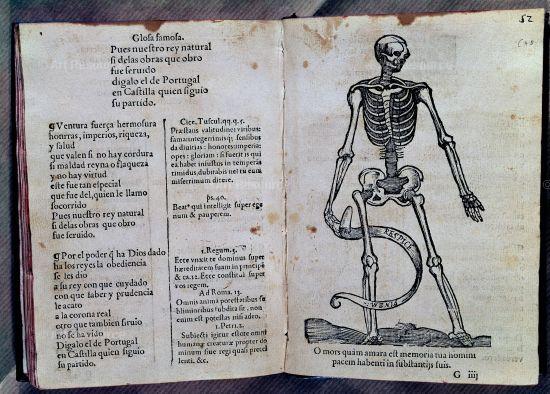 Glosa famosa.
Pues nuestro rey natural
si delas obras que obro
fue seruido
digalo el de Portugal
en Castilla quien siguio
su partido.
¶ Ventura fuerça hermosura
honrras, imperios, riqueza,
y salud
que valen si no hay cordura
si maldad reyna o flaqueza
y no hay virtud
este fue tan especial
que fue del, quien le llamo
socorrido
Pues nuestro rey natural
si delas obras que obro
fue seruido.
¶ Por el poder q̃ ha Dios dado
ha los reyes la obediencia
se les dio
a su rey con que cuydado
con que saber y prudencia
le acato
a la corona real
otro que tambien siruio
no se ha vido
Digalo el de Portugal
en Castilla quien siguio
su partido.
Cice. Tuscul. qq. q. 5.
Præstans valitudine viribus:
forma integerrimis q; sensibus
diuitias: honores imperia:
opes: gloriam: si fuerit is qui
ea habet iniustus in temperãs
timidus, dubitabis nel tu eum
miserrimum dicere.
ps. 40.
Beat⁹ qui intelligit super ege
num & pauperem.
1. Regum. 5.
Ecce vnxit te dominus super
hæreditatem suam in principẽ
& ca. 12. Ecce constitui super
vos regem.
Ad Roma. 13.
Omnis anima potestatibus su
blimioribus subdita sit. non
enim est potestas nisi a deo.
1. Petri. 2.
Subiecti igitur estote omni
humanę creaturæ propter do
minum siue regi quasi precel
lenti. &c.
52
RESPICE
FINEM
O mors quàm amara est memoria tua homini
pacem habenti in substantijs suis.
G iiij